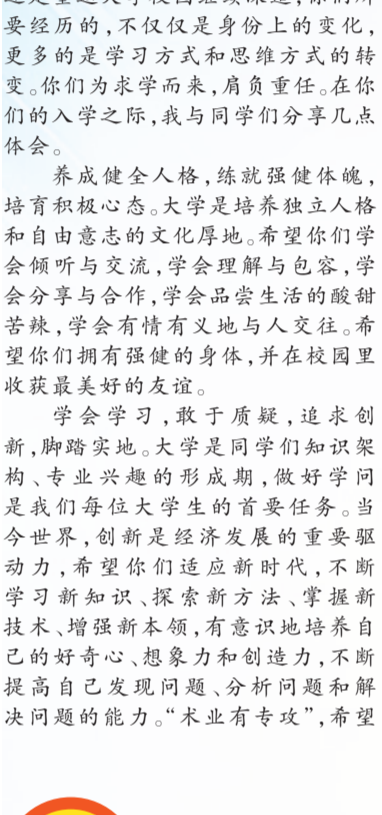 要经历的，不仅仅是身份上的变化，
更多的是学习方式和思维方式的转
变。你们为求学而来，肩负重任。在你
们的入学之际，我与同学们分享几点
体会。
养成健全人格，练就强健体魄，
培育积极心态。大学是培养独立人格
和自由意志的文化厚地。希望你们学
会倾听与交流，学会理解与包容，学
会分享与合作，学会品尝生活的酸甜
苦辣，学会有情有义地与人交往。希
望你们拥有强健的身体，并在校园里
收获最美好的友谊。
学会学习，敢于质疑，追求创
新，脚踏实地。大学是同学们知识架
构、专业兴趣的形成期，做好学问
是我们每位大学生的首要任务。当
今世界，创新是经济发展的重要驱
动力，希望你们适应新时代，不断
学习新知识、探索新方法、掌握新
技术、增强新本领，有意识地培养自
己的好奇心、想象力和创造力，不断
提高自己发现问题、分析问题和解
决问题的能力。“术业有专攻”，希望